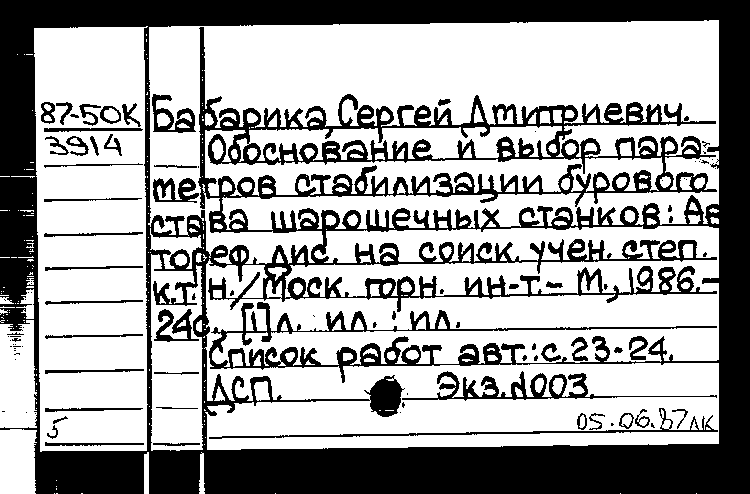 87-50К
3914
Бабарика, Сергей Дмитриевич.
Обоснование и выбор пара-
метров стабилизации бурового
става шарошечных станков: Ав
тореф. дис. на соиск. учен. степ.
к.т.н./Моск. горн. ин-т.- М., 1986.-
24с., [1]л. ил. : ил.
Список работ авт.: с. 23-24.
ДСП. Экз. №003.
5
05.06.87лк